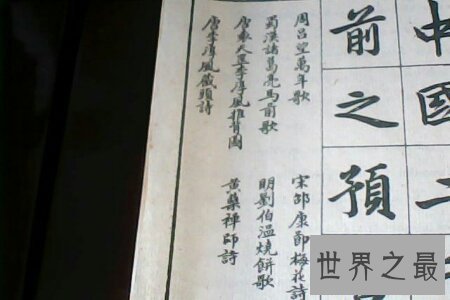 中國二
前之預
周呂望萬年歌
蜀漢諸葛亮馬前歌
唐袁天罡李淳風推背圖
唐李淳風藏頭詩
宋邵康節梅花詩
明劉伯溫燒餅歌
黃蘗禪師詩
世界之最